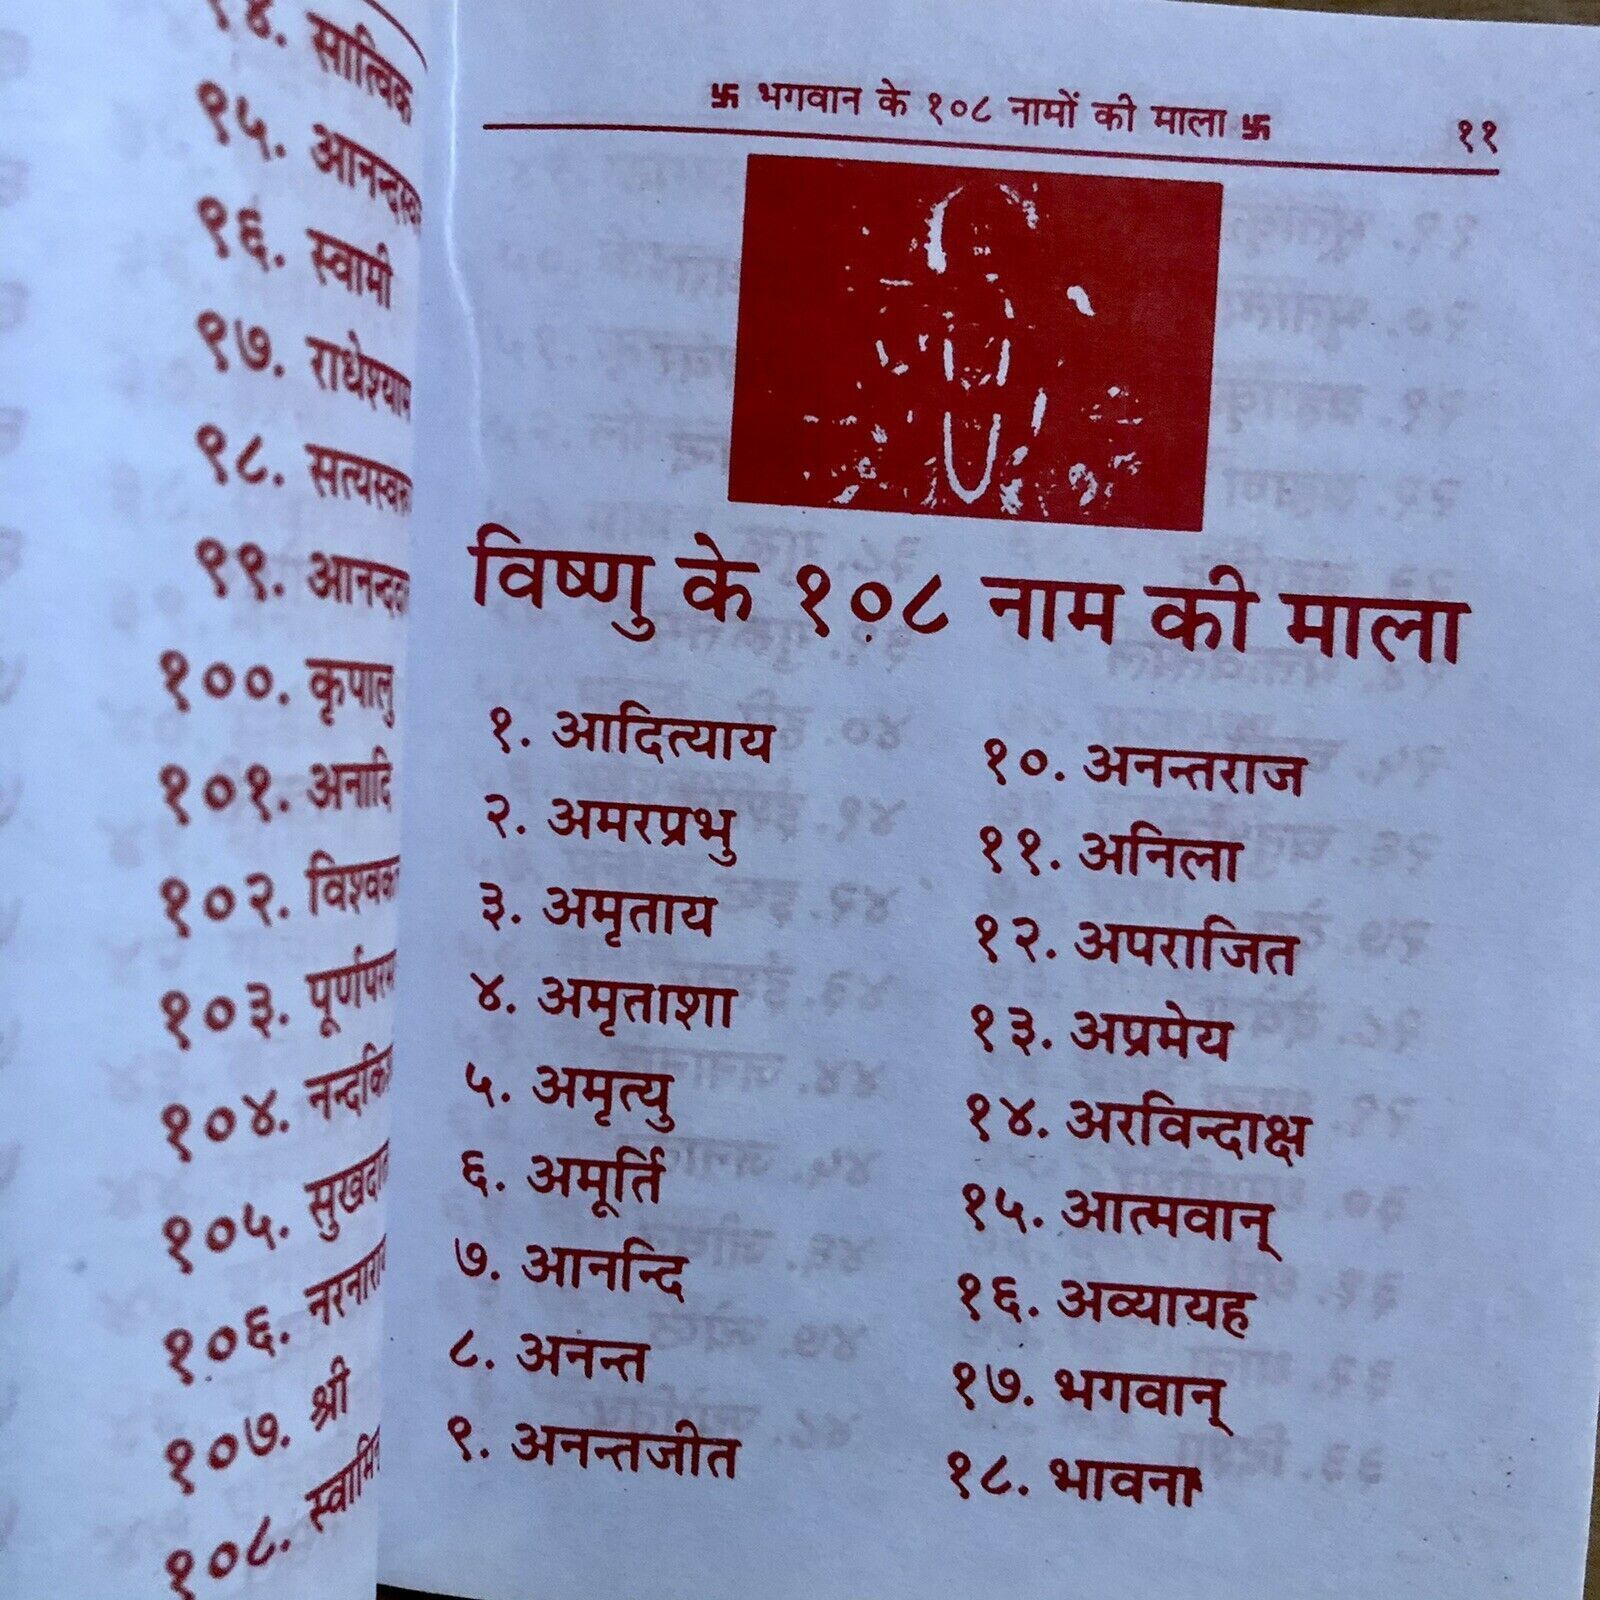 सात्विक
९५.
९६. स्वामी
९७. राधेश्याम
९८.
९९.
१००. कृपालु
१०१. अनादि
१०२.
१०३.
१०४.
१०५.
१०६.
१०७. श्री
१०८.
卐 भगवान के १०८ नामों की माला 卐 ११
विष्णु के १०८ नाम की माला
१. आदित्याय
२. अमरप्रभु
३. अमृताय
४. अमृताशा
५. अमृत्यु
६. अमूर्ति
७. आनन्दि
८. अनन्त
९. अनन्तजीत
१०. अनन्तराज
११. अनिला
१२. अपराजित
१३. अप्रमेय
१४. अरविन्दाक्ष
१५. आत्मवान्
१६. अव्यायह
१७. भगवान्
१८. भावना